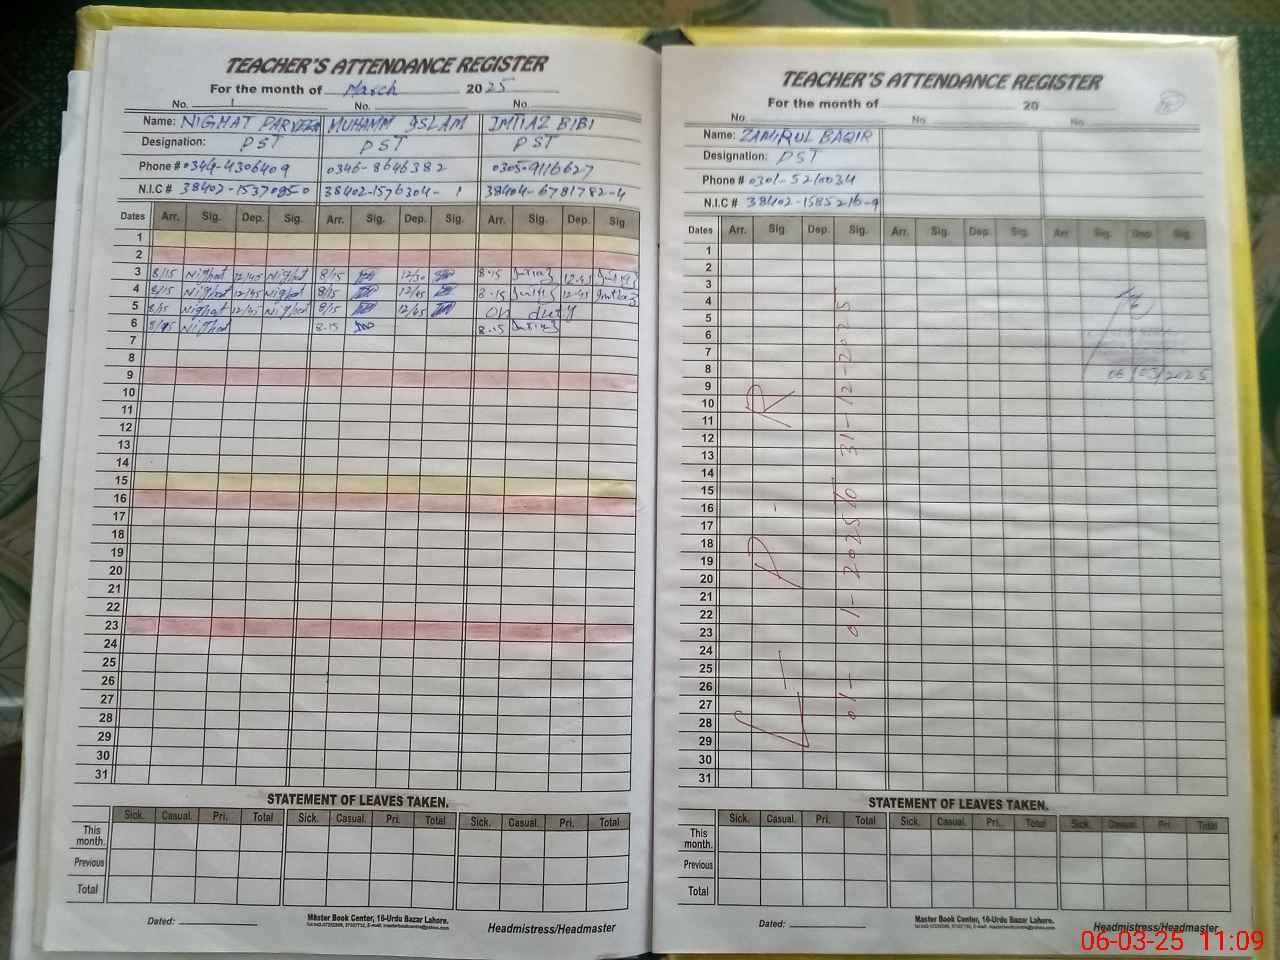 TEACHER'S ATTENDANCE REGISTER
For the month of March 2025
No. 1 No. No.
Name: NIGHAT PARVEEN MUHAMM ISLAM IMTIAZ BIBI
Designation: PST PST PST
Phone # 0344-4306409 0346-8646382 0305-9116627
N.I.C # 38402-1537095-0 38402-1576304-1 38404-6781782-4
Dates Arr. Sig. Dep. Sig. Arr. Sig. Dep. Sig. Arr. Sig. Dep. Sig.
1
2
3 8/15 Nighat 12/45 Nighat 8/15 12/30 8.15 Imtiaz 12.45 Imtiaz
4 8/15 Nighat 12/45 Nighat 8/15 12/45 8.15 Imtiaz 12.45 Imtiaz
5 8/15 Nighat 12/45 Nighat 8/15 12/45 on duty
6 8/15 Nighat 8.15 8.15 Imtiaz
7
8
9
10
11
12
13
14
15
16
17
18
19
20
21
22
23
24
25
26
27
28
29
30
31
STATEMENT OF LEAVES TAKEN.
Sick. Casual. Pri. Total Sick. Casual. Pri. Total Sick. Casual. Pri. Total
This month.
Previous
Total
Dated:
Master Book Center, 16-Urdu Bazar Lahore.
Headmistress/Headmaster
TEACHER'S ATTENDANCE REGISTER
For the month of 20
No. No. No.
Name: ZAMIRUL BAQIR
Designation: PST
Phone # 0301-5210034
N.I.C # 38402-1585216-9
Dates Arr. Sig. Dep. Sig. Arr. Sig. Dep. Sig. Arr. Sig. Dep. Sig.
1
2
3
4
5
6
7
8 06/03/2025
9
10
11
12
13
14
15
16
17
18
19
20
21
22
23
24
25
26
27
28
29
30
31
L-P-R
01-01-2025 to 31-12-2025
STATEMENT OF LEAVES TAKEN.
Sick. Casual. Pri. Total Sick. Casual. Pri. Total Sick. Casual. Pri. Total
This month.
Previous
Total
Dated:
Master Book Center, 16-Urdu Bazar Lahore.
Headmistress/Headmaster
06-03-25 11:09